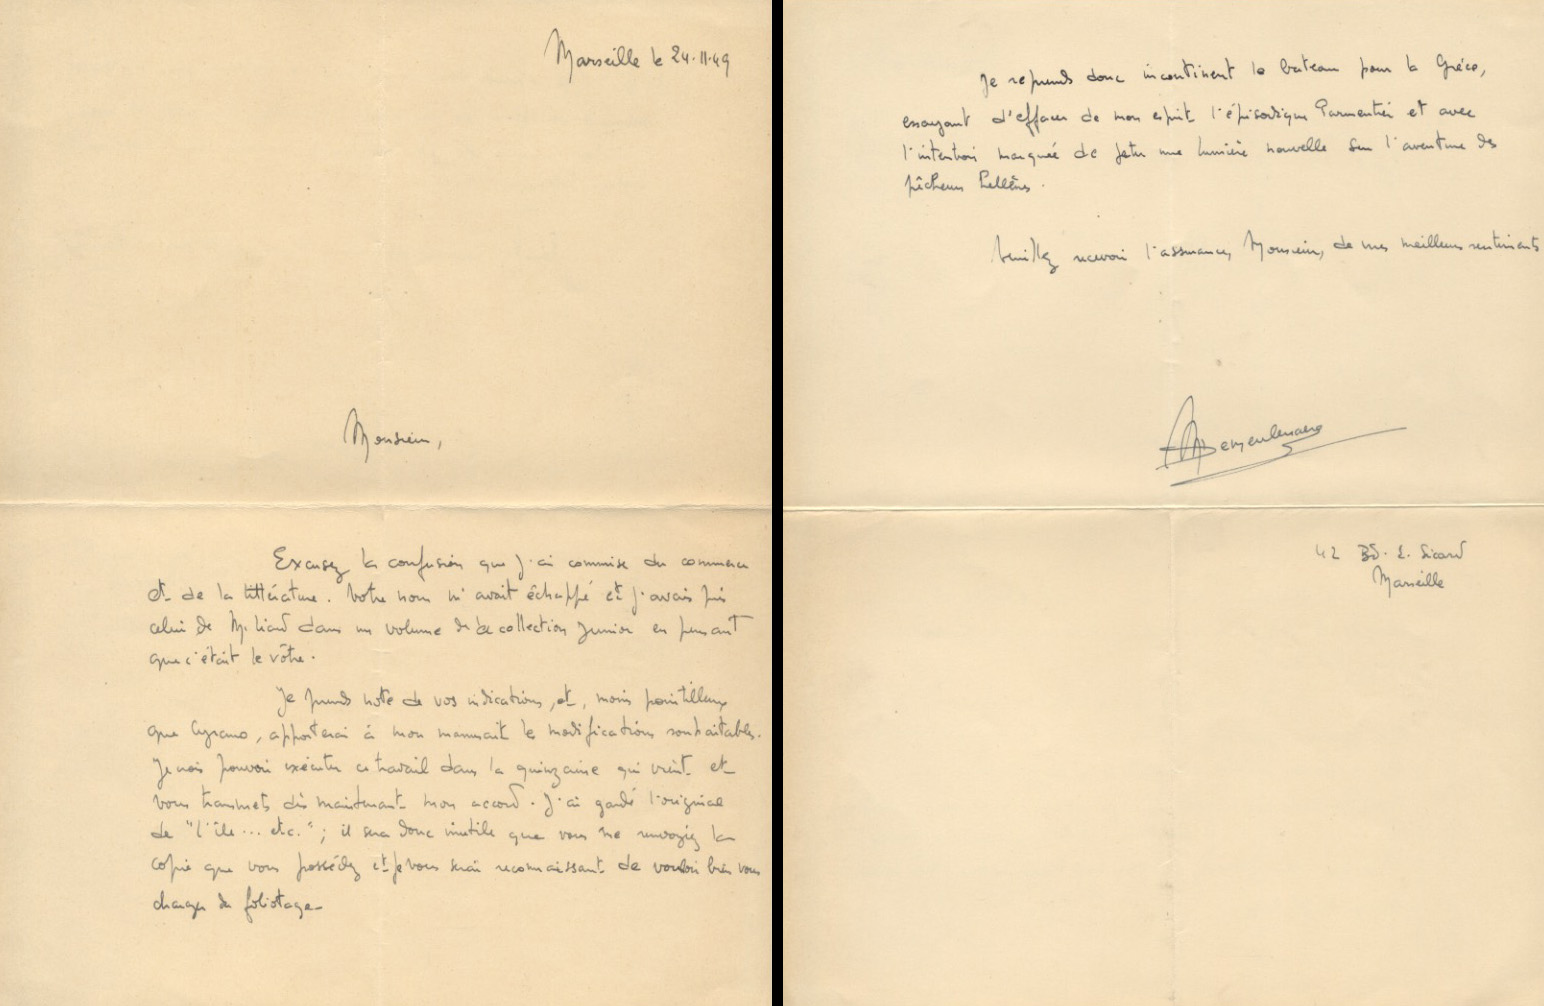 Marseille le 24.11.49
Monsieur,
Excusez la confusion que j'ai commise du commerce
et de la littérature. Votre nom m'avait échappé et j'avais pris
celui de M. Liard dans un volume de la collection Junior en pensant
que c'était le vôtre.
Je prends note de vos indications, et, moins pointilleux
que Cyrano, apporterai à mon manuscrit les modifications souhaitables.
Je vais pouvoir exécuter ce travail dans la quinzaine qui vient et
vous transmets dès maintenant mon accord. J'ai gardé l'original
de "l'île... etc."; il sera donc inutile que vous me renvoyiez la
copie que vous possédez et je vous serai reconnaissant de vouloir bien vous
charger du foliotage.
Je reprends donc incontinent le bateau pour la Grèce,
essayant d'effacer de mon esprit l'épisodique Parmentier et avec
l'intention marquée de jeter une lumière nouvelle sur l'aventure des
pêcheurs hellènes.
Veuillez recevoir l'assurance, Monsieur, de mes meilleurs sentiments
42 Bd. E. Sicard
Marseille